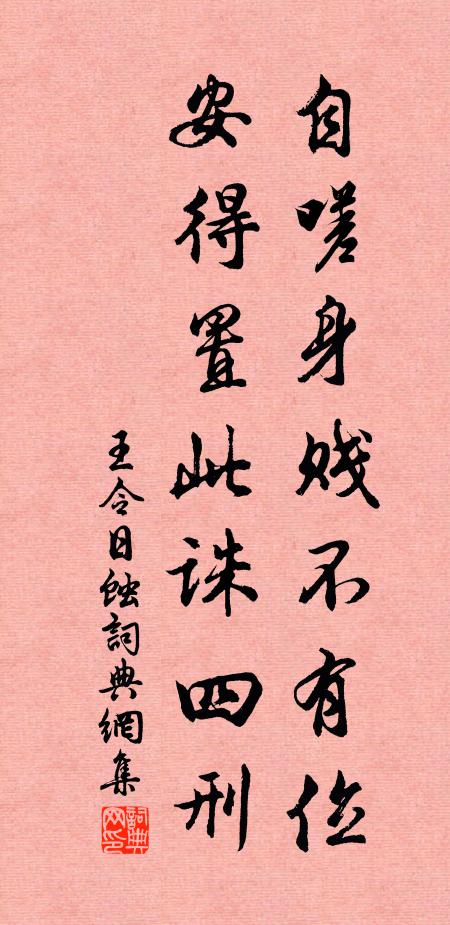 自嗟身贱不有位
安得置此誅四刑
王令日蝕詞典網集
詞典网印